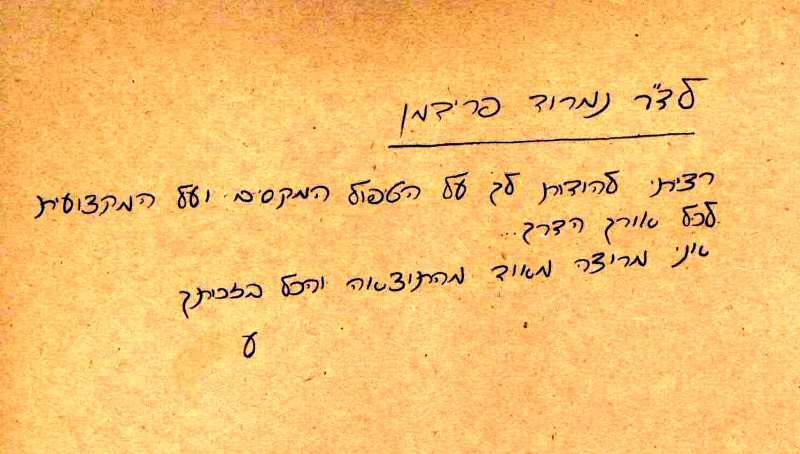 לד"ר נמרוד פרידמן
רציתי להודות לך על הטיפול המקסים ועל המקצועית
לכל אורך הדרך..
אני מרוצה מאוד מהתוצאה והכל בזכותך
ע